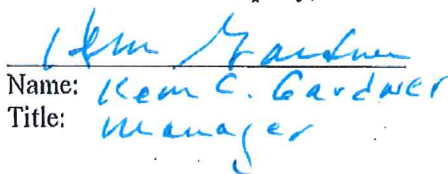 Kem Gardner
Name: Kem C. Gardner
Title: Manager